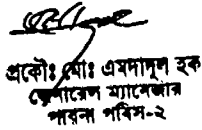 প্রকৌঃ মোঃ এমদাদুল হক
জেনারেল ম্যানেজার
পাবনা পবিস-২